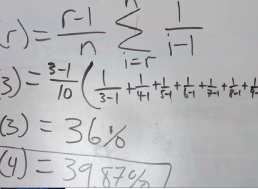 (r) = r-1/n Σ i=r 1/i-1
(3) = 3-1/10 ( 1/3-1 + 1/4-1 + 1/5-1 + 1/6-1 + 1/7-1 + 1/8-1 +
(3) = 36%
(4) = 39.87%